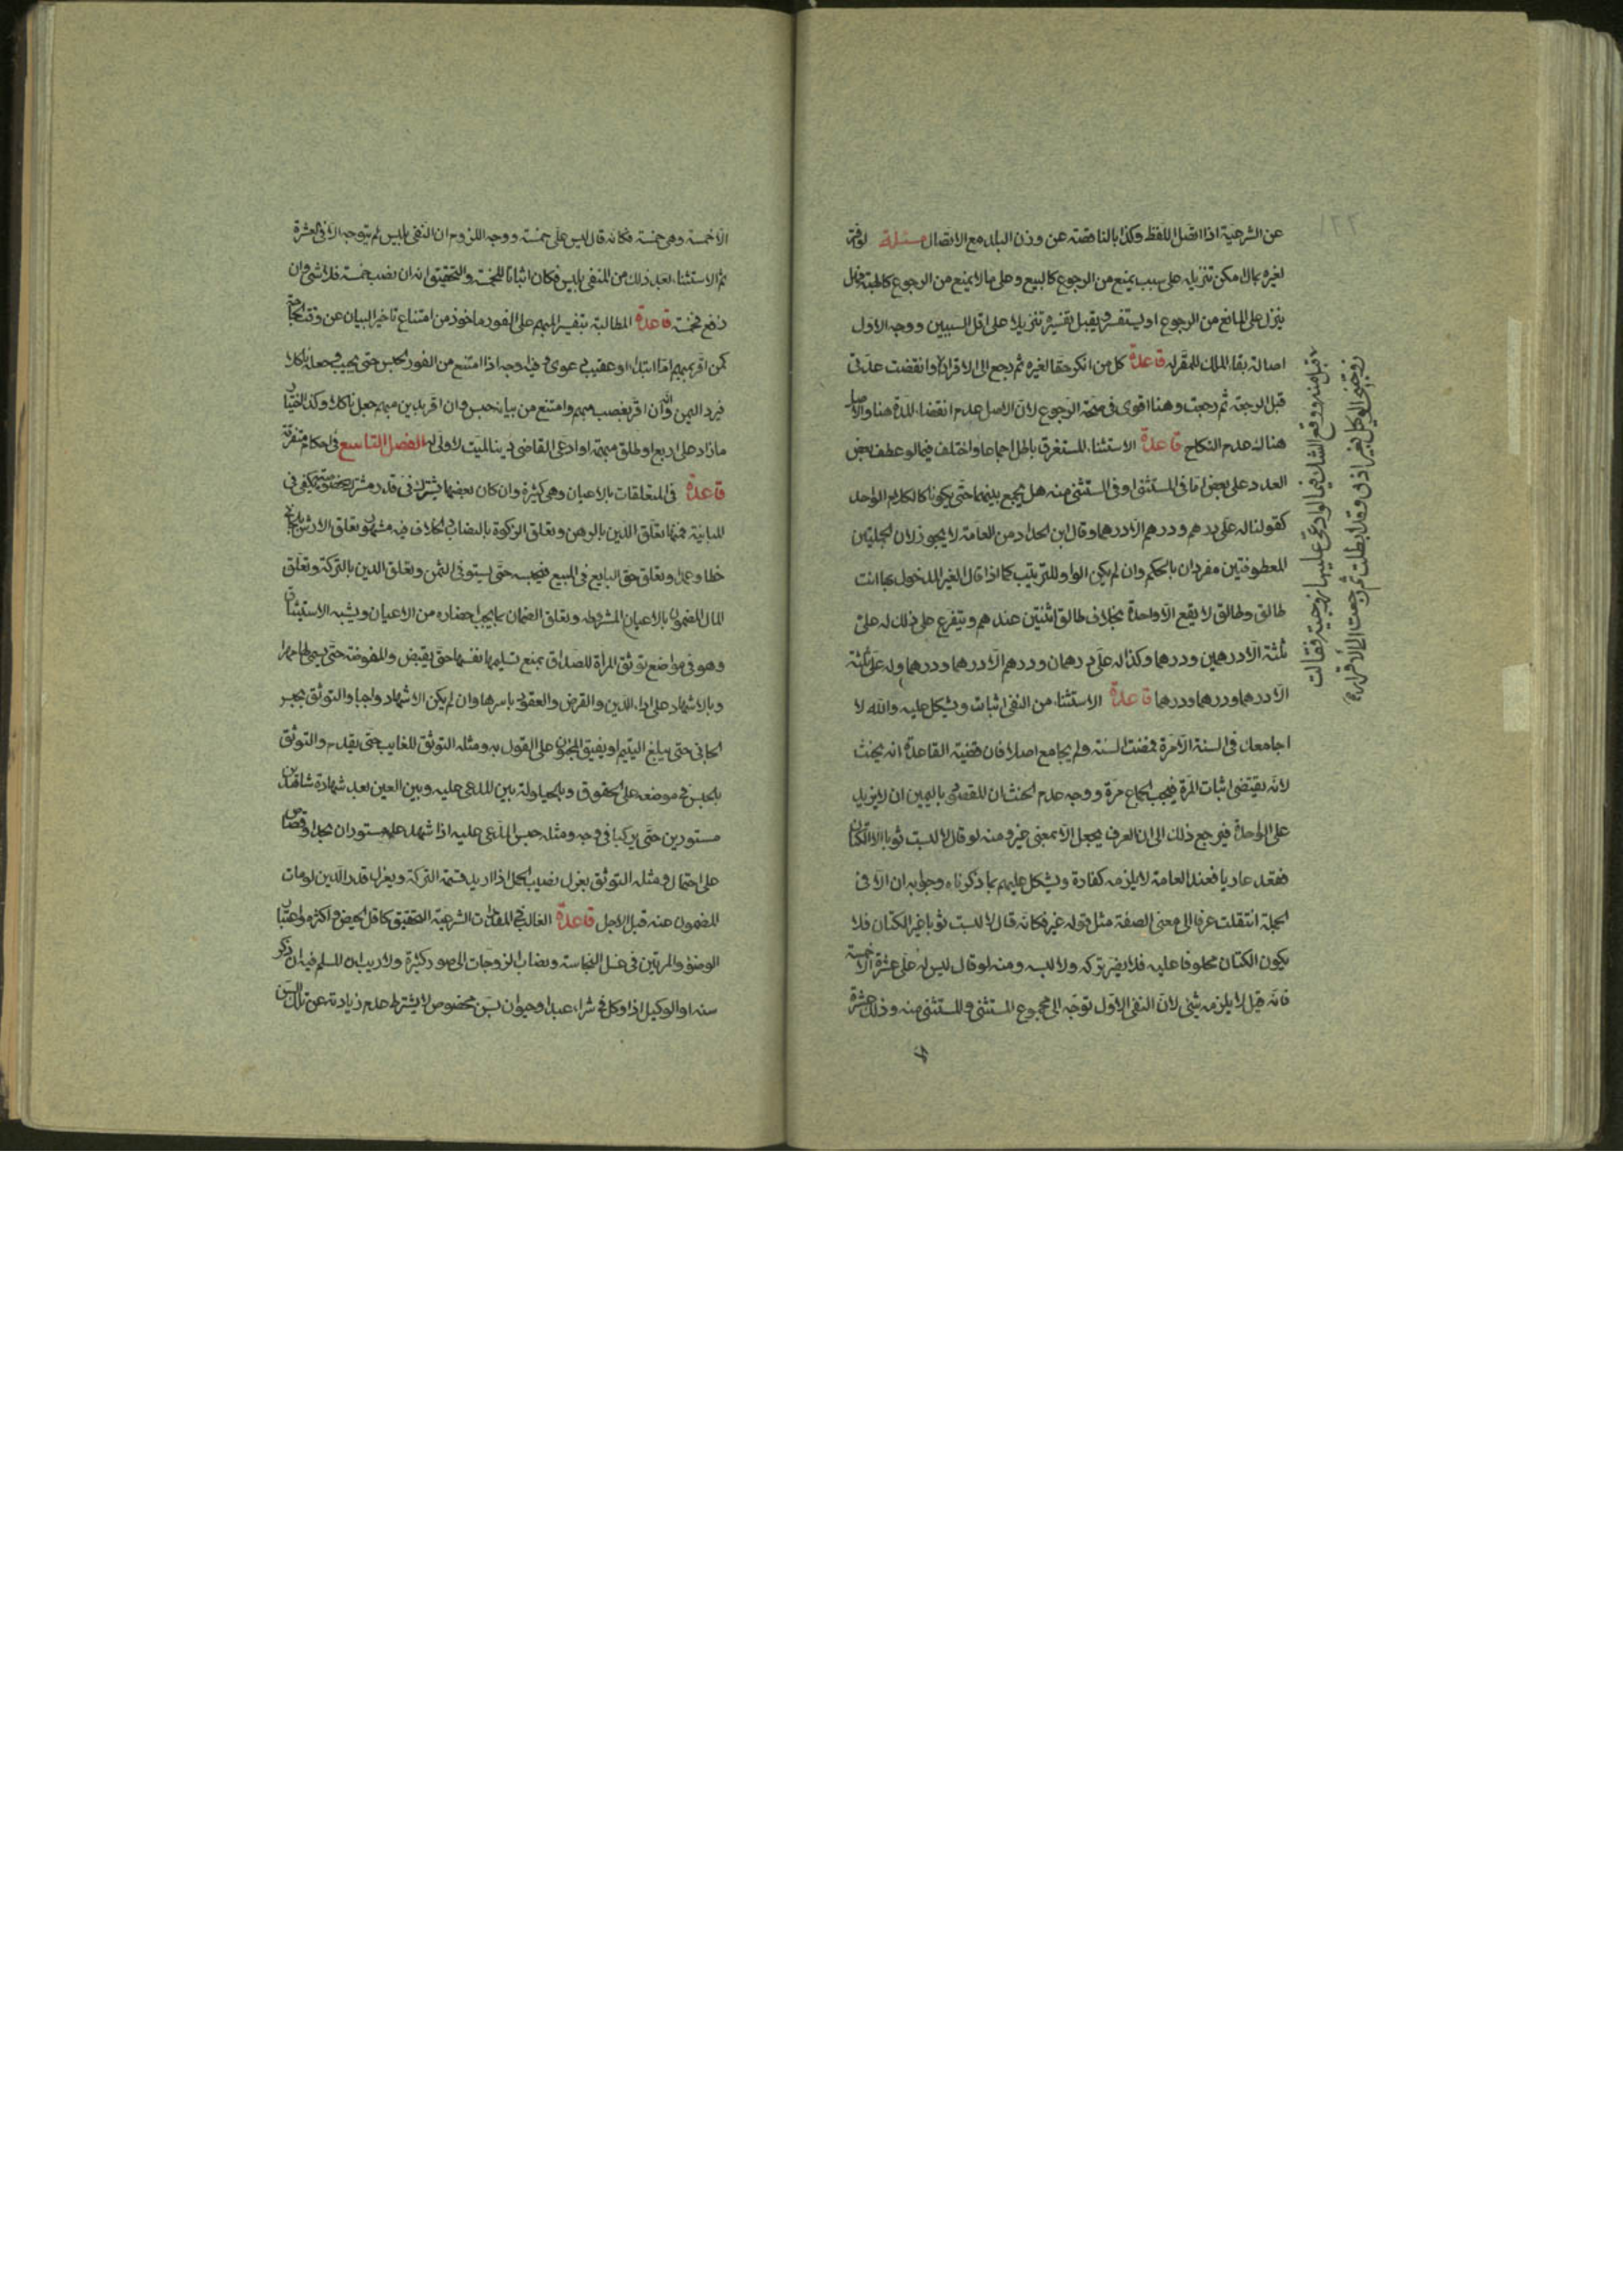 عن الشرعية اذا اتصل اللفظ وكذا بالناقصة عن وزن البلد مع الاتصال مسئلة لو اقر
لغيره بمال امكن تنزيله على سبب يمنع من الرجوع كالبيع وعلى ما لا يمنع من الرجوع كالهبة فهل
ينزل على المانع من الرجوع او يستفسر ويقبل تفسيره تنزيلا على اقل السببين ووجه الاول
اصالة بقاء الملك للمقر له قاعدة كل من انكر حقا لغيره ثم رجع الى الاقرار وانقضت عدتى
قبل الرجعة ثم رجعت وهنا اقوى فى صحة الرجوع لان الاصل عدم انقضاء المدة هنا والاصل
هناك عدم النكاح قاعدة الاستثناء المستغرق باطل اجماعا واختلف فيما لو عطف بعض
العدد على بعض اما فى المستثنى او فى المستثنى منه هل يجمع بينهما حتى يكونا كالكلام الواحد
كقولنا له على درهم ودرهم الا درهما وقال ابن الحداد من العامة لا يجوز لان الجملتين
المعطوفتين مفردان بالحكم وان لم يكن الواو للترتيب كما اذا قال لغير المدخول بها انت
طالق وطالق لا يقع الا واحدة بخلاف طالق اثنتين عندهم ويتفرع على ذلك له على
ثلثة الا درهمين ودرهما وكذا له على درهمان ودرهم الا درهما ودرهما وله على ثلثة
الا درهما ودرهما ودرهما قاعدة الاستثناء من النفى اثبات ويشكل عليه والله لا
اجامعك فى السنة الا مرة فمضت السنة ولم يجامع اصلا فان قضية القاعدة انه يحنث
لانه يقتضى اثبات المرة فيجب الجماع مرة ووجه عدم الحنث ان المقصود باليمين ان لا يزيد
على الواحدة فيرجع ذلك الى ان العرف يجعل الا بمعنى غير ومنه لو قال لا لبست ثوبا الا الكتان
فقعد عاريا فعند العامة لا يلزمه كفارة ويشكل عليهم بما ذكرناه وجوابه ان الا فى
الجملة انتقلت عرفا الى معنى الصفة مثل قوله غير فكانه قال لا لبست ثوبا غير الكتان فلا
يكون الكتان محلوفا عليه فلا يضر تركه ولا لبسه ومنه لو قال ليس له على عشرة الا خمسة
فانه قيل لا يلزمه شئ لان النفى الاول توجه الى مجموع المستثنى والمستثنى منه وذلك عشرة
الا
قبل منه ووقع الشك فيما لو ادعى عليها زوجية فقالت
زوجنى الوكيل بغير اذنى وقد ابطلت ثم رجعت الى الاقرار
الا خمسة وهى خمسة فكانه قال ليس على خمسة ووجه اللزوم ان النفى بليس لم يتوجه الا فى العشرة
ثم الاستثناء بعد ذلك من المنفى بليس فكان اثباتا للخمسة والتحقيق انه ان نصب خمسة فلا شئ وان
رفع فخمسة قاعدة المطالبة بتفسير المبهم على الفور ماخوذ من امتناع تاخير البيان عن وقت الحاجة
كمن اقر بمبهم اما ابتداء او عقيب دعوى وفيه وجه اذا امتنع من الفور الحبس حتى يجيب وجعله ناكلا
فيرد اليمين وانه ان اقر بغصب مبهم وامتنع من بيانه حبس وان اقر بدين مبهم جعل ناكلا وكذا اختيار
ما زاد على اربع او طلق مبهمة او ادعى القاضى دينا لميت لا ولى له الفصل التاسع فى احكام متفرقة
قاعدة فى المتعلقات بالاعيان وهى كثيرة وان كان بعضها يشترك فى قدر مشترك يكفى فى
المباينة فمنها تعلق الدين بالرهن وتعلق الزكوة بالنصاب والخلاف فيه مشهور وتعلق الارش بالجانى
خطا وعمدا وتعلق حق البايع فى المبيع فيحبسه حتى يستوفى الثمن وتعلق الدين بالتركة وتعلق
المال المضمون بالاعيان المشروطه وتعلق الضمان بما يجب احضاره من الاعيان ويشبه الاستيثاق
وهو فى مواضع توثق المراة للصداق بمنع تسليمها نفسها حتى يقبض والمفوضة حتى يسمى لها مهرا
وبالاشهاد على اداء الدين والقرض والعقود باسرها وان لم يكن الاشهاد واجبا والتوثق بحبس
الجانى حتى يبلغ اليتيم او يفيق المجنون على القول به ومثله التوثق للغايب حتى يقدم والتوثق
بالحبس فى موضعه على الحقوق وبالحيلولة بين المدعى عليه وبين العين بعد شهادة شاهدين
مستورين حتى يزكيا فى وجه ومثله حبس المدعى عليه اذا شهد عليه مستوران بحد او قصاص
على احتمال ومثله التوثق بعزل نصيب الحمل اذا اريد قسمة التركة وبعزل قدر الدين لو مات
المضمون عنه قبل الاجل قاعدة الغالب فى المقدرات الشرعية التحقيق كاقل الحيض واكثره واعتبار
الوضوء والمرتين فى غسل النجاسة ونصاب الزوجات الى صور كثيرة ولا ريب ان المسلم فيه ان ذكر
سنه او الوكيل اذا وكل فى شراء عبد او حيوان بسن مخصوص لا يشترط عدم زيادته عن تلك السن